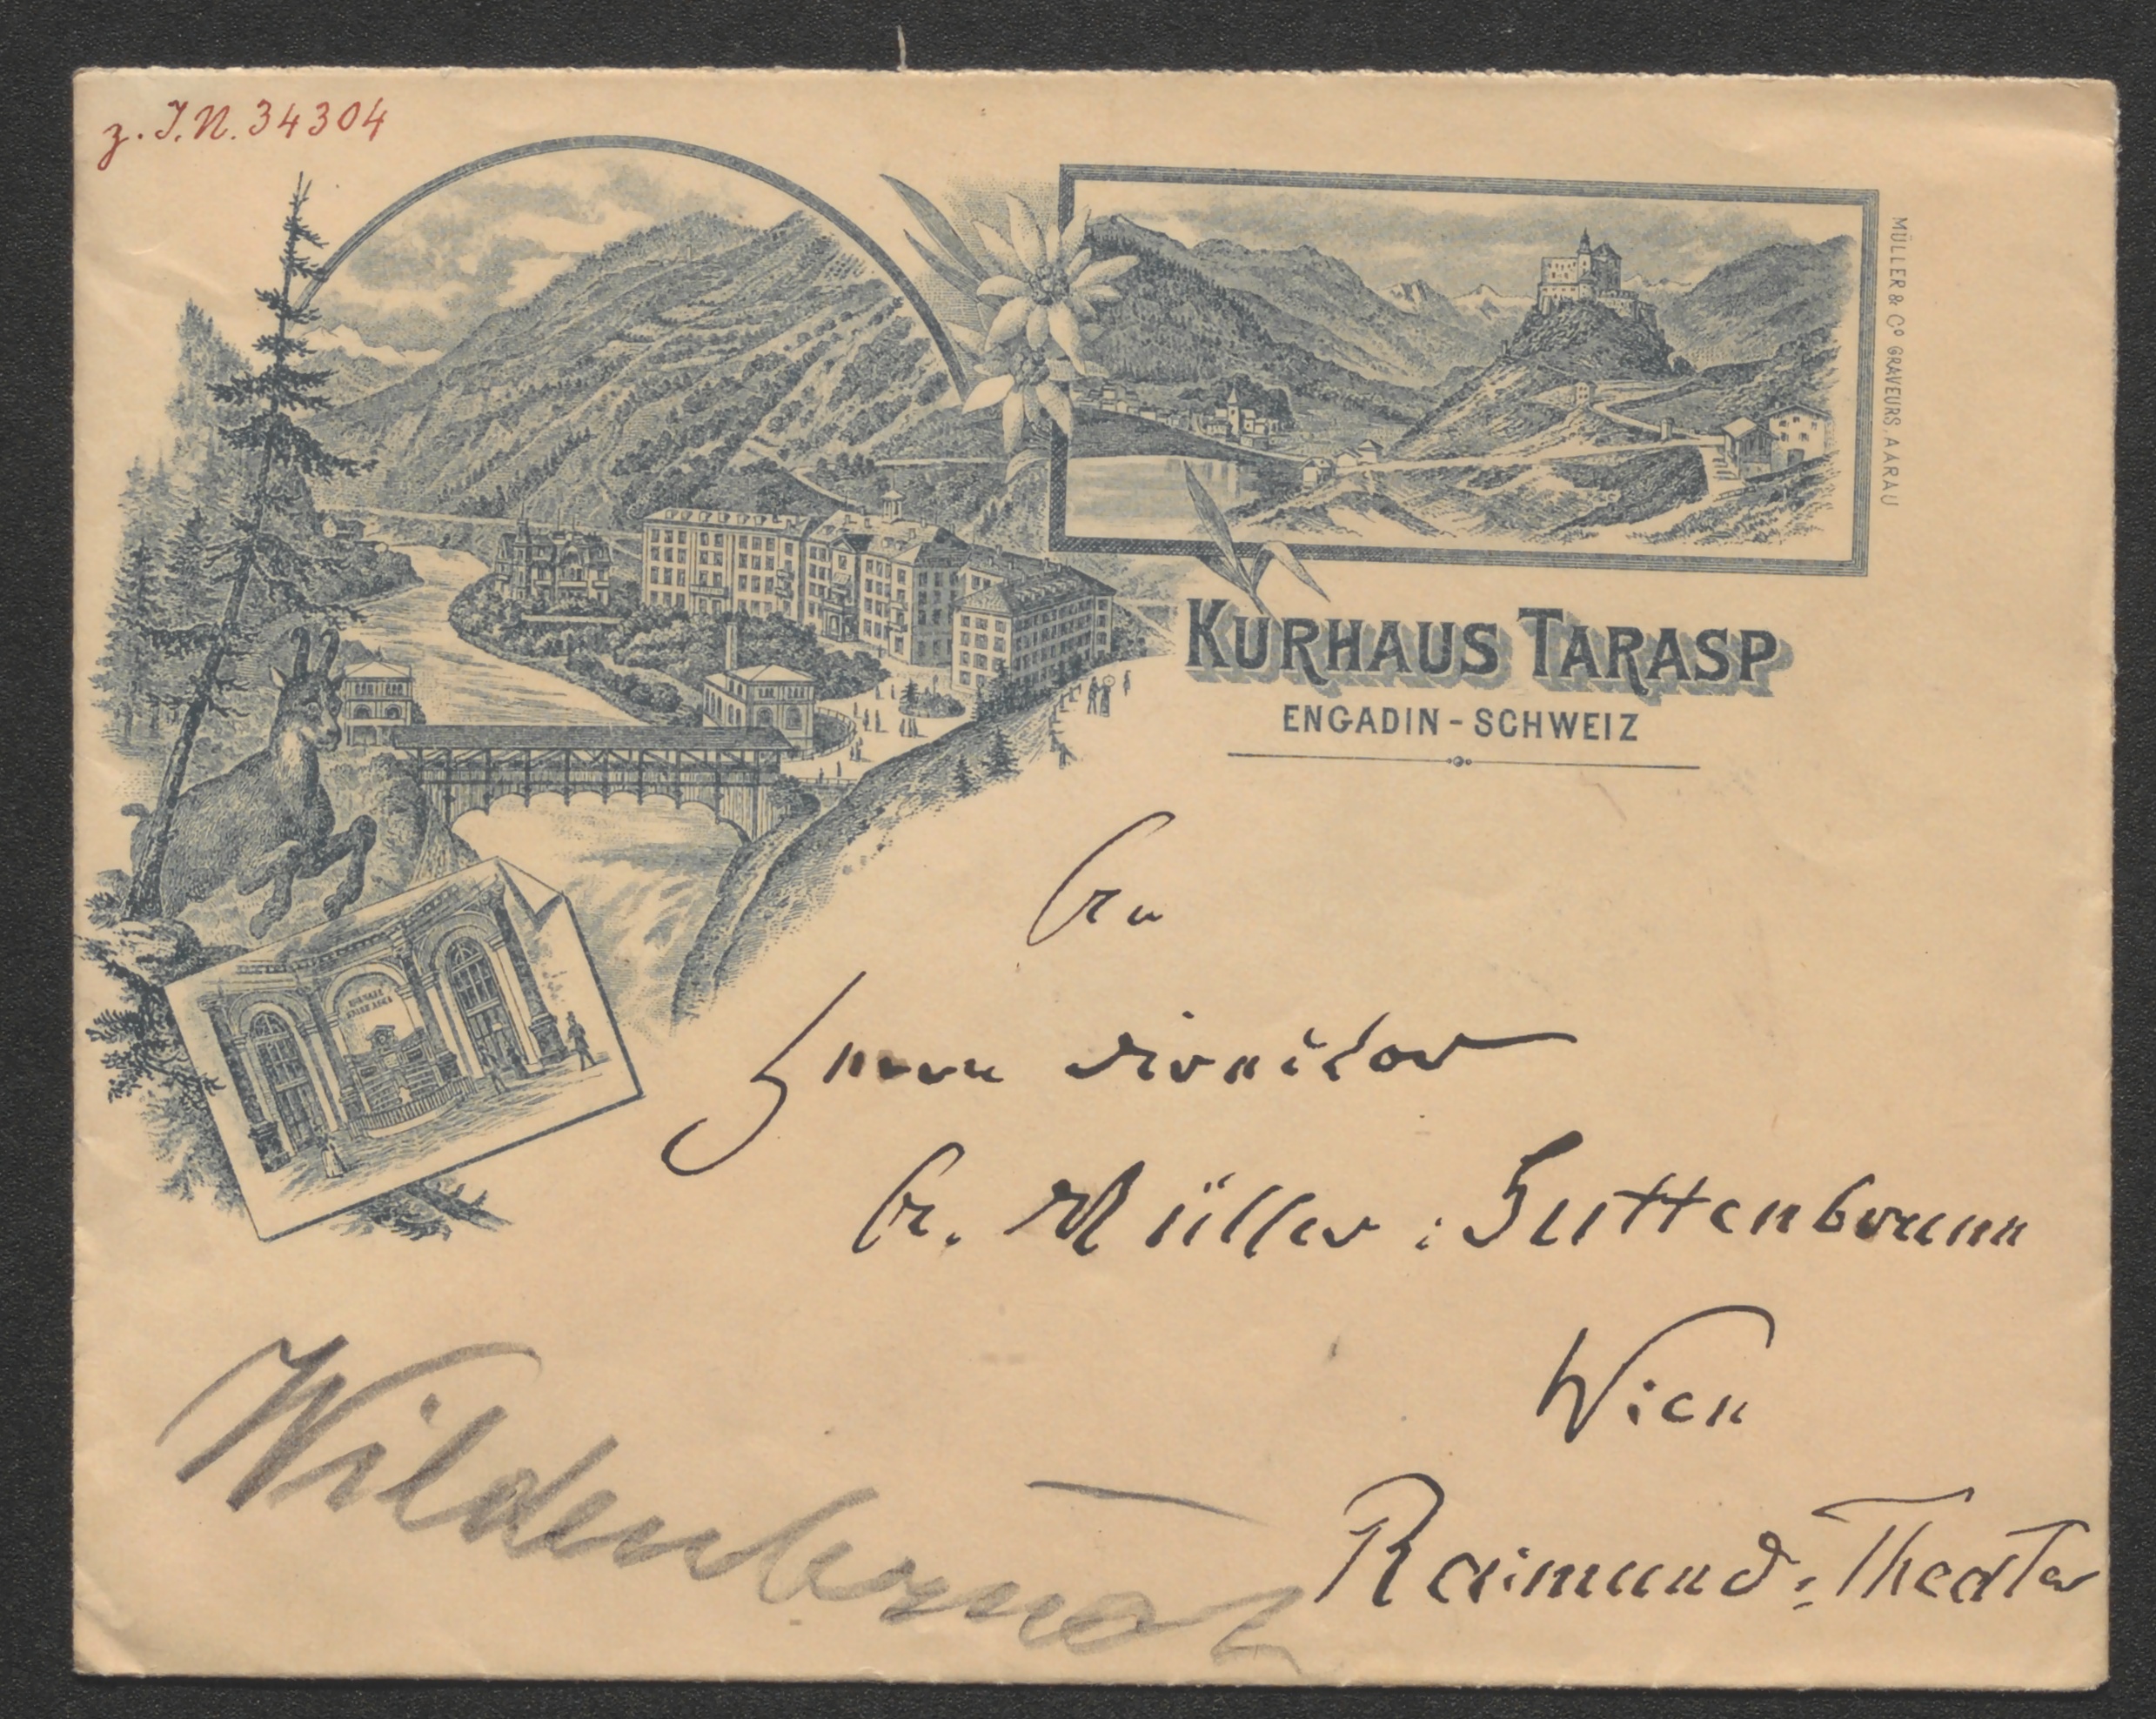 z. I. N. 34304
MÜLLER & Cº GRAVEURS, AARAU
KURHAUS TARASP
ENGADIN - SCHWEIZ
Herrn Direktor
Müller-Guttenbrunn
Wien
Raimund-Theater